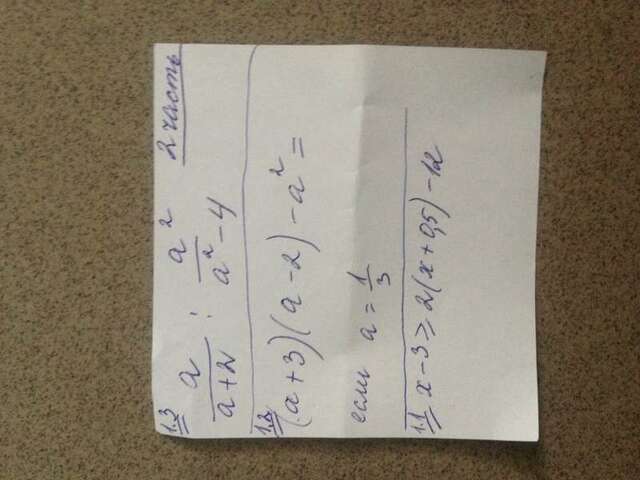 1.3 2 часть
a/(a+2) : a²/(a²-4)
1.2 (a+3)(a-2)-a²=
если a=1/3
1.1 x-3≥2(x+0,5)-12